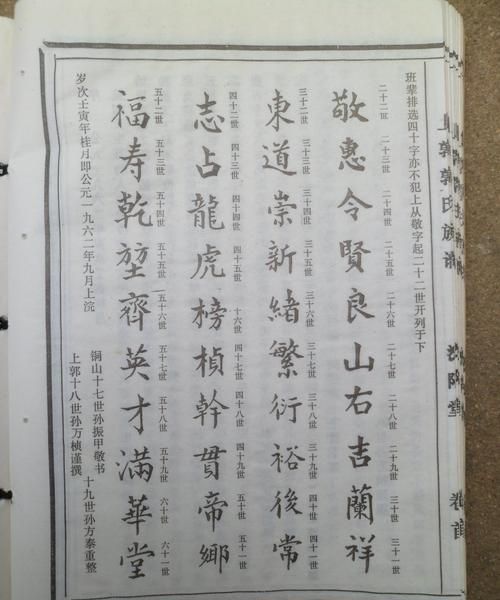 上郭郭氏族谱 汾阳堂 卷首
班辈排选四十字亦不犯上从敬字起二十二世开列于下
二十二世 二十三世 二十四世 二十五世 二十六世 二十七世 二十八世 二十九世 三十世 三十一世
敬惠令賢良山右吉蘭祥
三十二世 三十三世 三十四世 三十五世 三十六世 三十七世 三十八世 三十九世 四十世 四十一世
東道崇新緒繁衍裕後常
四十二世 四十三世 四十四世 四十五世 十六世 四十七世 四十八世 四十九世 五十世 五十一世
志占龍虎榜楨幹貫帝鄉
五十二世 五十三世 五十四世 五十五世 五十六世 五十七世 五十八世 五十九世 六十世 六十一世
福寿乾堃齊英才滿華堂
岁次壬寅年桂月即公元一九六二年九月上浣
铜山十七世孙振甲敬书 十九世孙方泰重整
上郭十八世孙万桢谨撰